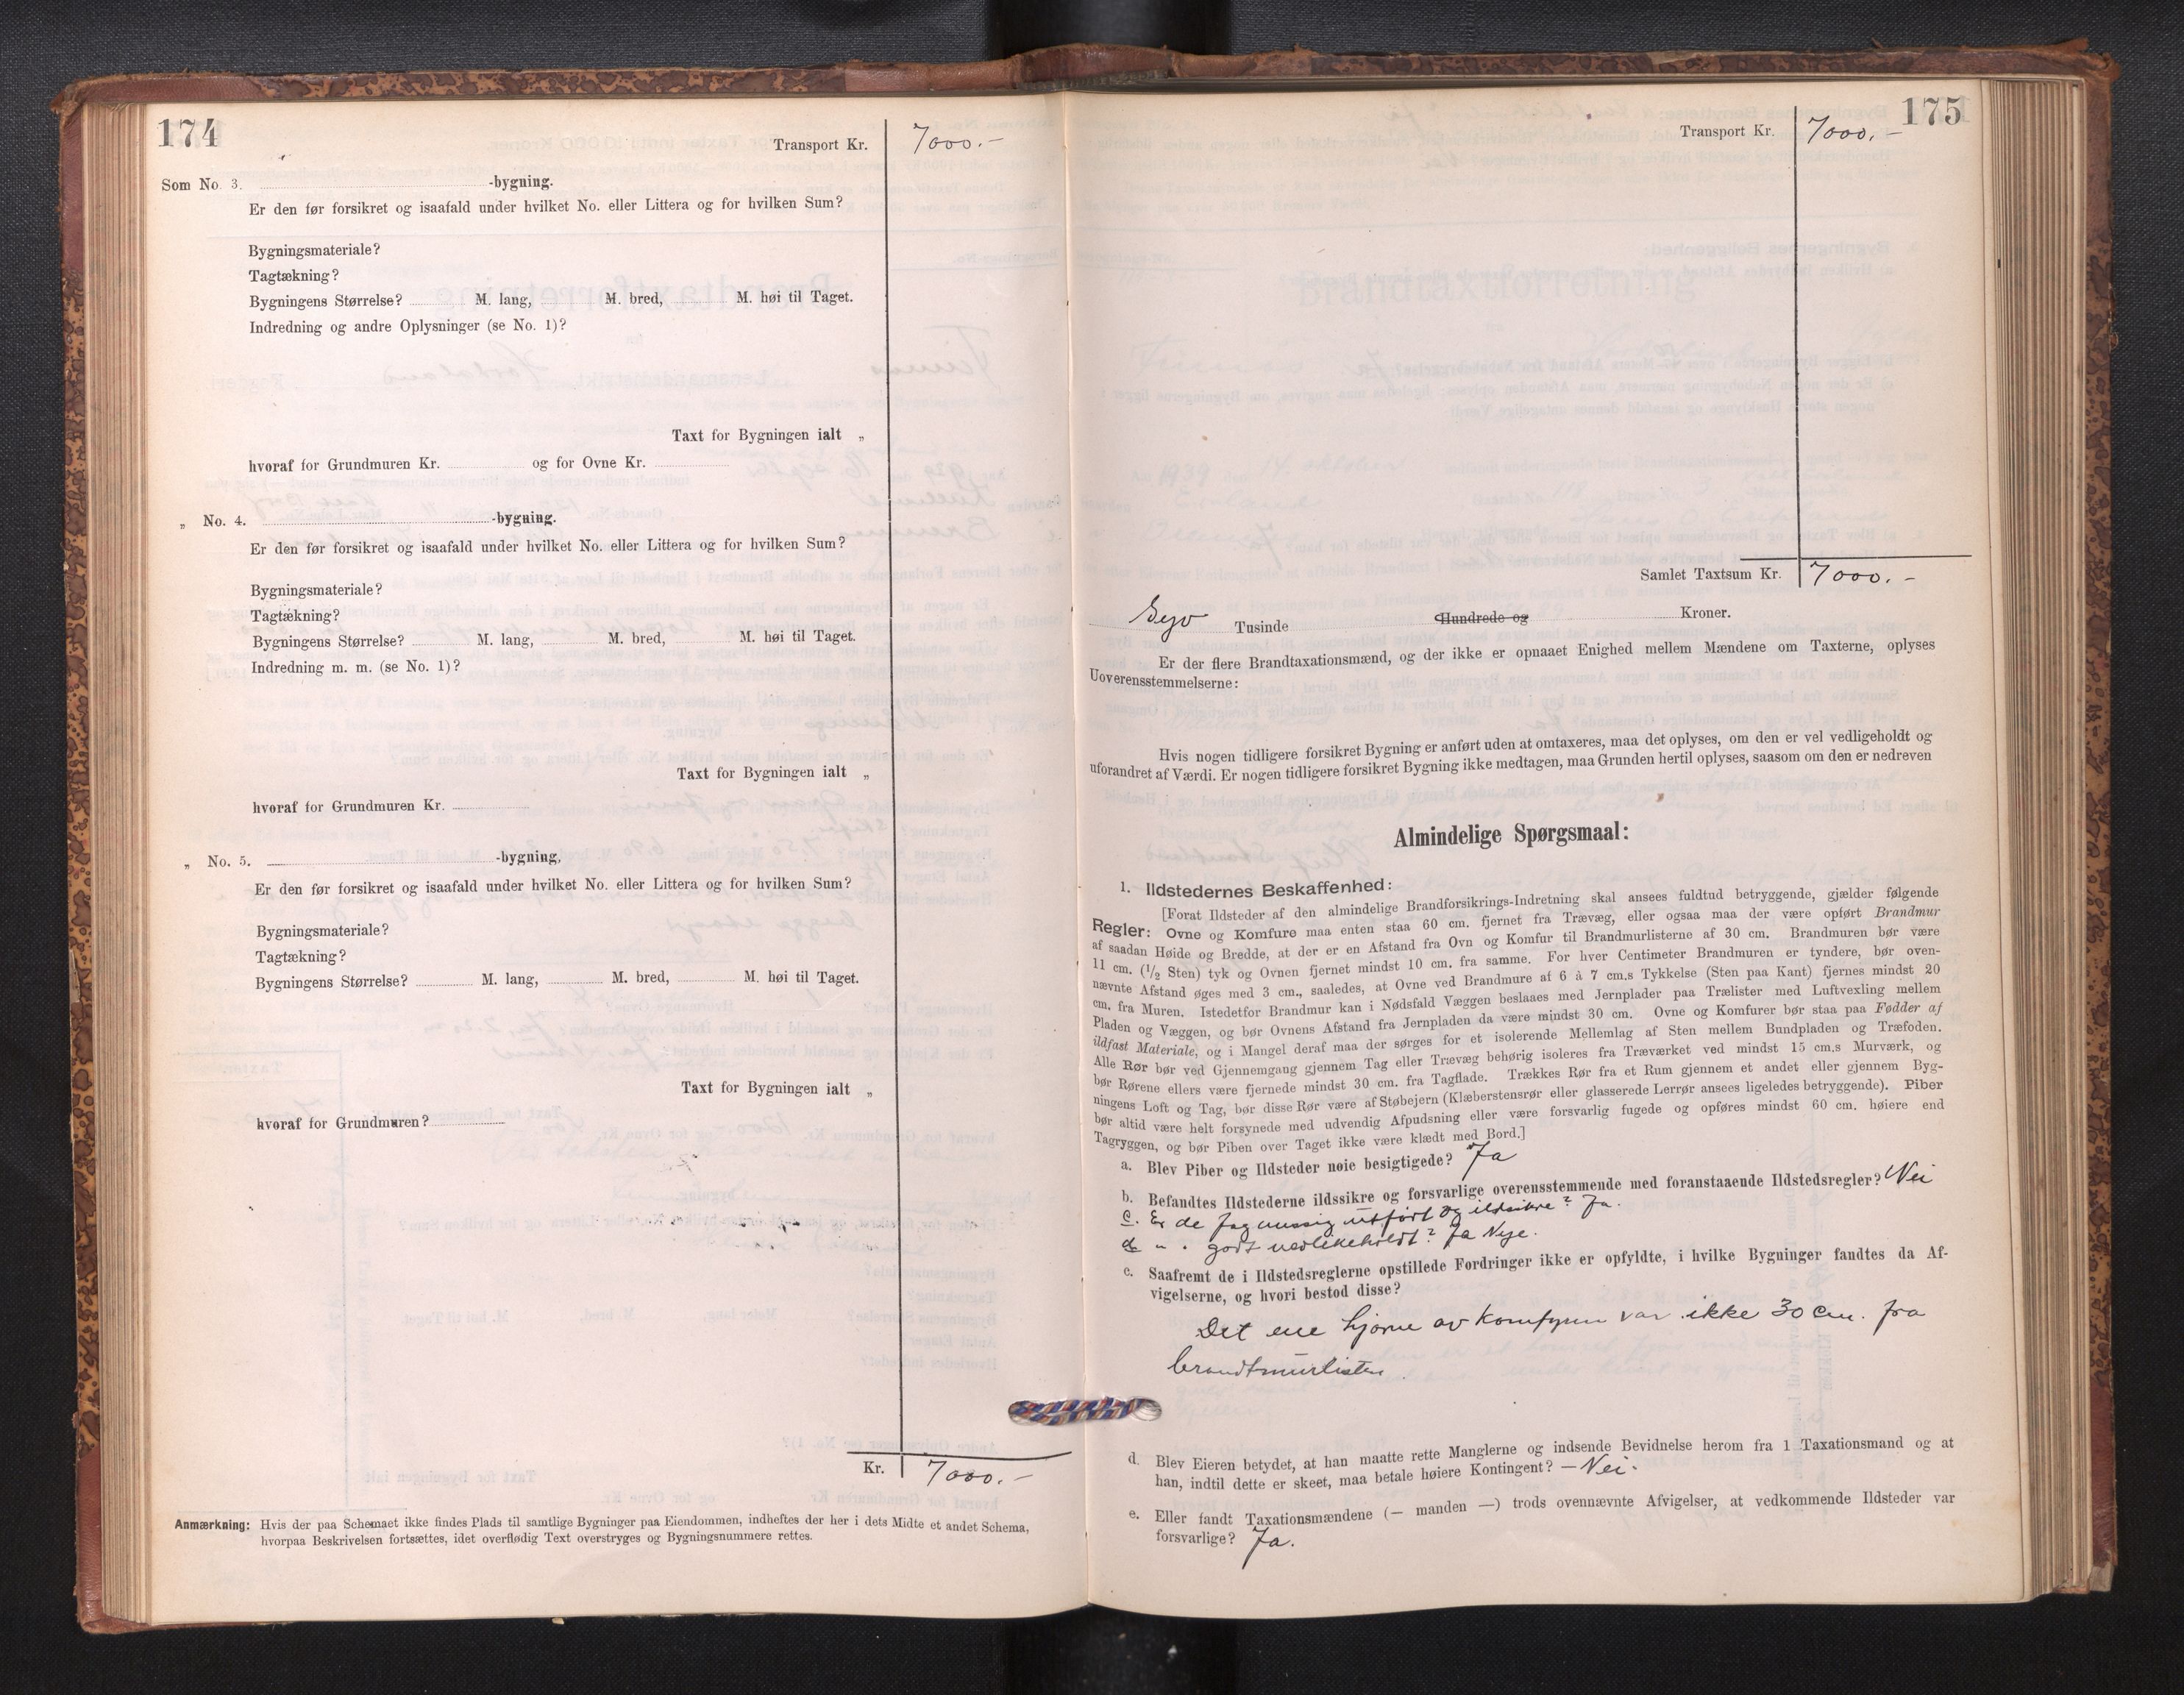 174
Transport Kr. 7000.-
Som No. 3. -bygning.
Er den før forsikret og isaafald under hvilket No. eller Littera og for hvilken Sum?
Bygningsmateriale?
Tagtækning?
Bygningens Størrelse? M. lang, M. bred, M. høi til Taget.
Indredning og andre Oplysninger (se No. 1)?
Taxt for Bygningen ialt „
hvoraf for Grundmuren Kr. og for Ovne Kr.
„ No. 4. -bygning.
Er den før forsikret og isaafald under hvilket No. eller Littera og for hvilken Sum?
Bygningsmateriale?
Tagtækning?
Bygningens Størrelse? M. lang, M. bred, M. høi til Taget.
Indredning m. m. (se No. 1)?
Taxt for Bygningen ialt „
hvoraf for Grundmuren Kr.
„ No. 5. -bygning.
Er den før forsikret og isaafald under hvilket No. eller Littera og for hvilken Sum?
Bygningsmateriale?
Tagtækning?
Bygningens Størrelse? M. lang, M. bred, M. høi til Taget.
Taxt for Bygningen ialt „
hvoraf for Grundmuren?
Kr. 7000.-
Anmærkning: Hvis der paa Schemaet ikke findes Plads til samtlige Bygninger paa Eiendommen, indheftes der her i dets Midte et andet Schema,
hvorpaa Beskrivelsen fortsættes, idet overflødig Text overstryges og Bygningsnummere rettes.
175
Transport Kr. 7000.-
Samlet Taxtsum Kr. 7000.-
Syv Tusinde Hundrede og Kroner.
Er der flere Brandtaxationsmænd, og der ikke er opnaaet Enighed mellem Mændene om Taxterne, oplyses
Uoverensstemmelserne:
Hvis nogen tidligere forsikret Bygning er anført uden at omtaxeres, maa det oplyses, om den er vel vedligeholdt og
uforandret af Værdi. Er nogen tidligere forsikret Bygning ikke medtagen, maa Grunden hertil oplyses, saasom om den er nedreven
Almindelige Spørgsmaal:
1. Ildstedernes Beskaffenhed:
[Forat Ildsteder af den almindelige Brandforsikrings-Indretning skal ansees fuldtud betryggende, gjælder følgende
Regler: Ovne og Komfure maa enten staa 60 cm. fjernet fra Trævæg, eller ogsaa maa der være opført Brandmur
af saadan Høide og Bredde, at der er en Afstand fra Ovn og Komfur til Brandmurlisterne af 30 cm. Brandmuren bør være
11 cm. (1/2 Sten) tyk og Ovnen fjernet mindst 10 cm. fra samme. For hver Centimeter Brandmuren er tyndere, bør oven-
nævnte Afstand øges med 3 cm., saaledes, at Ovne ved Brandmure af 6 à 7 cm.s Tykkelse (Sten paa Kant) fjernes mindst 20
cm. fra Muren. Istedetfor Brandmur kan i Nødsfald Væggen beslaaes med Jernplader paa Trælister med Luftvexling mellem
Pladen og Væggen, og bør Ovnens Afstand fra Jernpladen da være mindst 30 cm. Ovne og Komfurer bør staa paa Fødder af
ildfast Materiale, og i Mangel deraf maa der sørges for et isolerende Mellemlag af Sten mellem Bundpladen og Træfoden.
Alle Rør bør ved Gjennemgang gjennem Tag eller Trævæg behørig isoleres fra Træværket ved mindst 15 cm.s Murværk, og
bør Rørene ellers være fjernede mindst 30 cm. fra Tagflade. Trækkes Rør fra et Rum gjennem et andet eller gjennem Byg-
ningens Loft og Tag, bør disse Rør være af Støbejern (Klæberstensrør eller glasserede Lerrør ansees ligeledes betryggende). Piber
bør altid være helt forsynede med udvendig Afpudsning eller være forsvarlig fugede og opføres mindst 60 cm. høiere end
Tagryggen, og bør Piben over Taget ikke være klædt med Bord.]
a. Blev Piber og Ildsteder nøie besigtigede? Ja
b. Befandtes Ildstederne ildssikre og forsvarlige overensstemmende med foranstaaende Ildstedsregler? Nei
c. Er de fagmessig utført og ildsikre? Ja.
d " . godt vedlikeholdt? Ja Nye.
c. Saafremt de i Ildstedsreglerne opstillede Fordringer ikke er opfyldte, i hvilke Bygninger fandtes da Af-
vigelserne, og hvori bestod disse?
Det ene hjørne av komfyren var ikke 30 cm. fra
brandtmurlisten.
d. Blev Eieren betydet, at han maatte rette Manglerne og indsende Bevidnelse herom fra 1 Taxationsmand og at
han, indtil dette er skeet, maa betale høiere Kontingent? — Nei.
e. Eller fandt Taxationsmændene (— manden —) trods ovennævnte Afvigelser, at vedkommende Ildsteder var
forsvarlige? Ja.